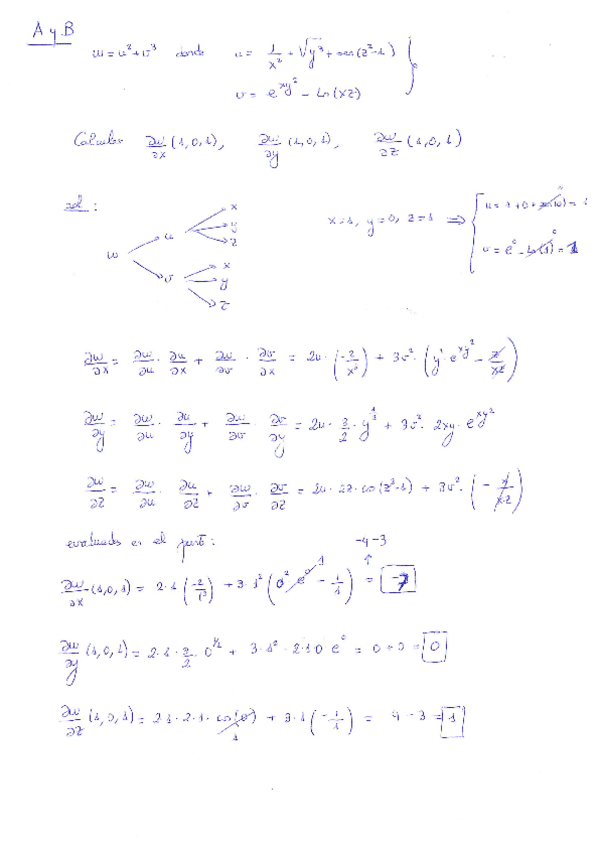 A y B
w = u² + v³ donde u = 1/x² + √y³ + sen(z²-1)
v = e^(xy²) - Ln(xz)
Calcular ∂w/∂x (1,0,1), ∂w/∂y (1,0,1), ∂w/∂z (1,0,1)
sol:
x=1, y=0, z=1 ⇒ { u = 1+0+sen(0) = 1
v = e⁰ - Ln(1) = 1
w
u
x
y
z
v
x
y
z
∂w/∂x = ∂w/∂u · ∂u/∂x + ∂w/∂v · ∂v/∂x = 2u·(-2/x³) + 3v²·(y²·e^(xy²) - z/xz)
∂w/∂y = ∂w/∂u · ∂u/∂y + ∂w/∂v · ∂v/∂y = 2u · 3/2 · y^(1/2) + 3v² · 2xy · e^(xy²)
∂w/∂z = ∂w/∂u · ∂u/∂z + ∂w/∂v · ∂v/∂z = 2u · 2z · cos(z²-1) + 3v² · (- x/xz)
evaluados en el punto: -4-3
∂w/∂x (1,0,1) = 2·1(-2/1³) + 3·1²(0² e⁰ - 1/1) = -7
∂w/∂y (1,0,1) = 2·1·3/2·0^(1/2) + 3·1²·2·1·0 e⁰ = 0+0 = 0
∂w/∂z (1,0,1) = 2·1·2·1·cos(0) + 3·1(-1/1) = 4-3 = 1